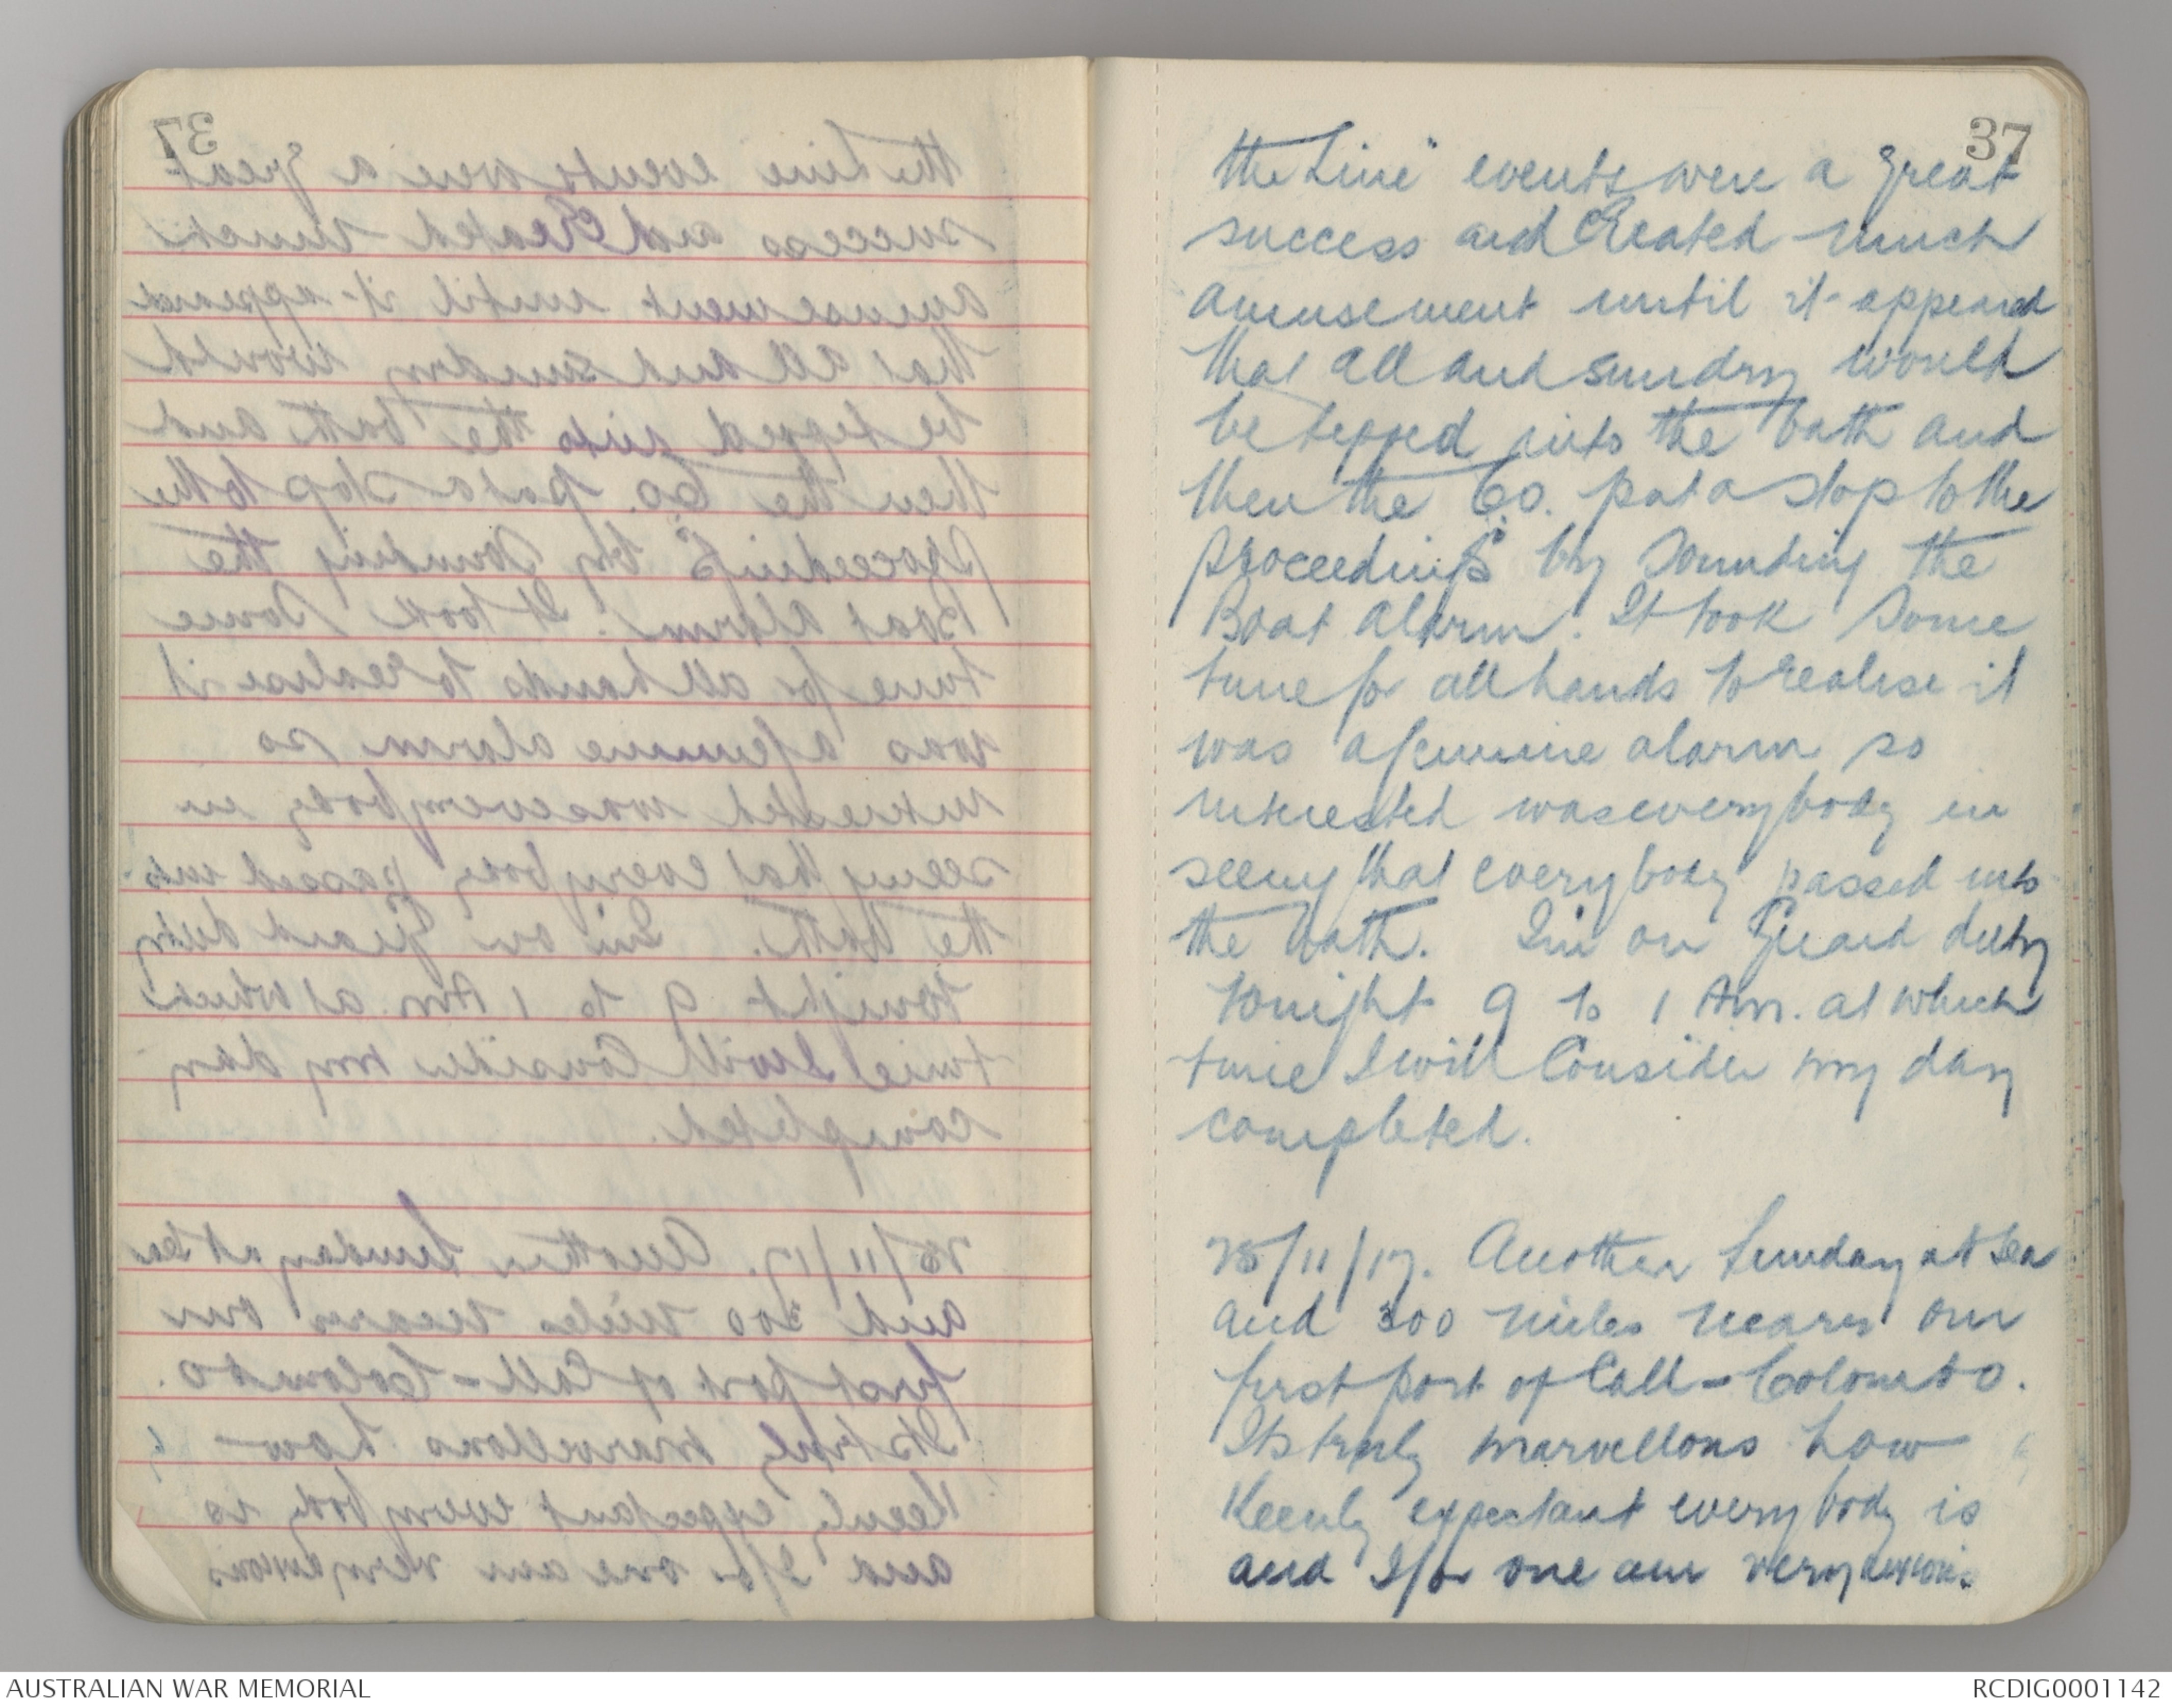 37
the Line" events were a great
success and Created much
amusement until it appeared
that all and sundry would
be tipped into the bath and
then the Co. put a stop to the
proceedings by sounding the
Boat Alarm. It took some
time for all hands to realise it
was a genuine alarm so
interested was everybody in
seeing that everybody passed into
the bath. I'm on Guard duty
tonight 9 to 1 Am. at which
time I will Consider my day
completed.
25/11/17. Another Sunday at sea
and 300 miles nearer our
first port of Call - Colombo.
Its truly marvellous how
Keenly expectant everybody is
and I for one am very anxious
AUSTRALIAN WAR MEMORIAL
RCDIG0001142